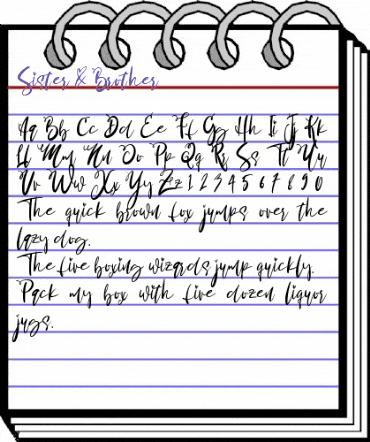 Sister & Brother
Aa Bb Cc Dd Ee Ff Gg Hh Ii Jj Kk
Ll Mm Nn Oo Pp Qq Rr Ss Tt Uu
Vv Ww Xx Yy Zz 1 2 3 4 5 6 7 8 9 0
The quick brown fox jumps over the
lazy dog.
The five boxing wizards jump quickly.
Pack my box with five dozen liquor
jugs.